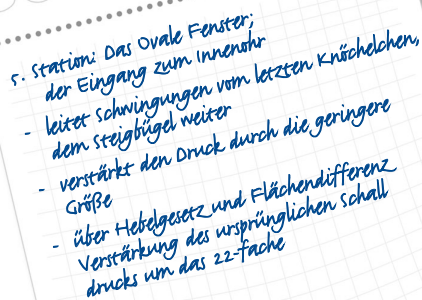 5. Station: Das Ovale Fenster;
der Eingang zum Innenohr
- leitet Schwingungen vom letzten Knöchelchen,
dem Steigbügel weiter
- verstärkt den Druck durch die geringere
Größe
- über Hebelgesetz und Flächendifferenz
Verstärkung des ursprünglichen Schall
drucks um das 22-fache